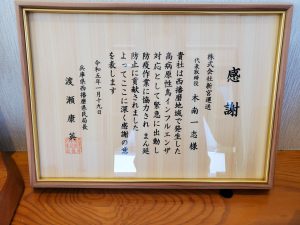 感謝
株式会社新宮運送
代表取締役 木南一志様
貴社は西播磨地域で発生した
高病原性鳥インフルエンザ
対応として緊急に出動し
防疫作業に協力されまん延
防止に貢献されました
よってここに深く感謝の意
を表します
令和五年一月十九日
兵庫県西播磨県民局長
渡瀬康英